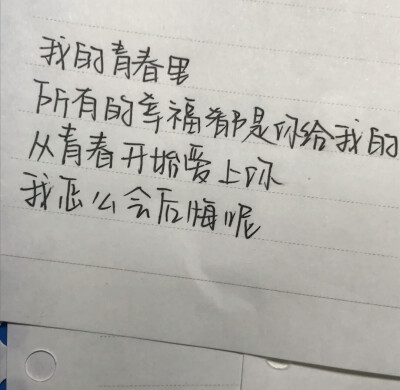 我的青春里
所有的幸福都是你给我的
从青春开始爱上你
我怎么会后悔呢